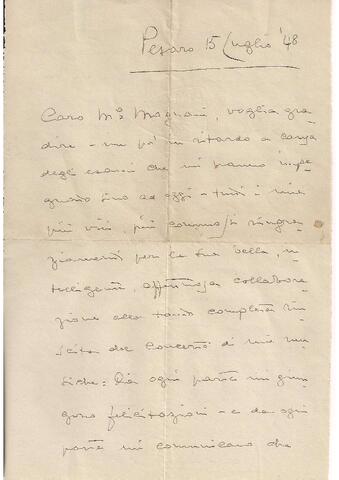 Pesaro 15 Luglio '48
Caro M° Magnani, voglia gra-
dire - un po' in ritardo a causa
degli esami che mi hanno impe-
gnato sino ad oggi - tutti i miei
più vivi, più commossi ringra-
ziamenti per la Sua bella, in-
telligente, affettuosa collabora-
zione alla tanto completa riu-
scita del Concerto di mie mu-
siche: Da ogni parte mi giun-
gono felicitazioni - e da ogni
parte mi comunicano che